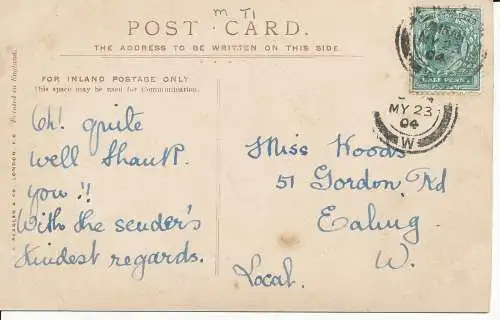 M T1
POST CARD.
THE ADDRESS TO BE WRITTEN ON THIS SIDE.
FOR INLAND POSTAGE ONLY
This space may be used for Communication.
Oh! quite
well Thank
you!!
With the sender's
Kindest regards.
Miss Woods
51 Gordon. Rd
Ealing
W.
Local.
HALF PENNY
MY 23
04
W
LONDON, E.C. Printed in England.